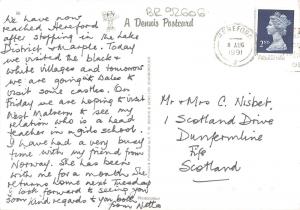 RR 92606
A Dennis Postcard
We have now
reached Hereford
after stopping in the Lake
District & Marple. Today
we visited the black &
white villages and tomorrow
we are going to Wales to
visit some castles. On
Friday we are hoping to visit
West Malvern to see my
relation who is a head
teacher in a girls school.
I have had a very busy
time with my friend from
Norway. She has been
with me for a month. She
returns home next Tuesday.
I look forward to seeing you
soon. Kind regards to you both
from Netta
HEREFORD
8 AUG
1991
Mr & Mrs C. Nisbet,
1 Scotland Drive
Dunfermline
Fife
Scotland